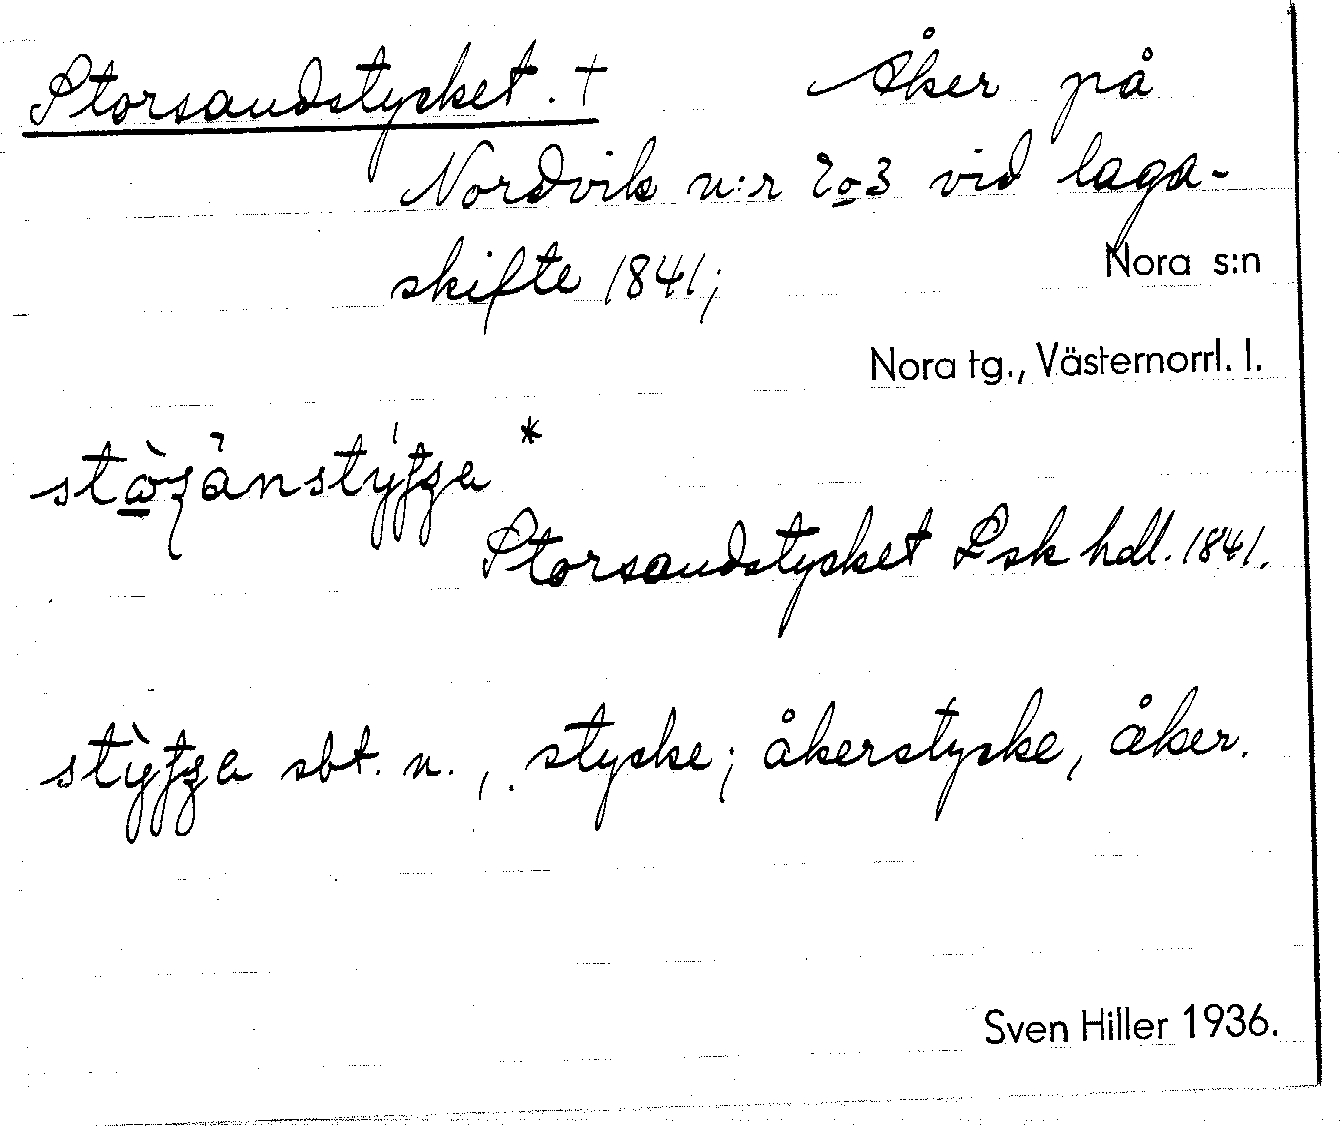 Storsandstycket. † Åker på
Nordvik n:r 2o3 vid laga-
skifte 1841;
Nora s:n
Nora tg., Västernorrl. l.
Storsandstycket Lsk hdl. 1841.
sbt. n., stycke; åkerstycke, åker.
Sven Hiller 1936.